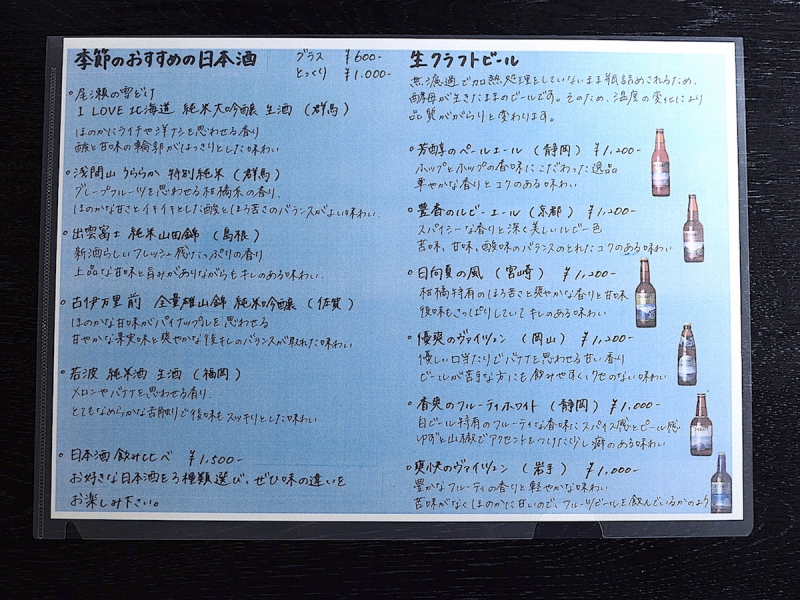 季節のおすすめの日本酒
グラス ¥600-
とっくり ¥1,000-
○尾瀬の雪どけ
I LOVE 北海道 純米大吟醸 生酒 (群馬)
ほのかにライチや洋ナシを思わせる香り
酸と甘味の輪郭がはっきりとした味わい
○浅間山 うららか 特別純米 (群馬)
グレープフルーツを思わせる柑橘系の香り.
ほのかな甘さとイキイキとした酸とほろ苦さのバランスがよい味わい.
○出雲富士 純米山田錦 (島根)
新酒らしいフレッシュ感たっぷりの香り
上品な甘味と旨みがありながらもキレのある味わい.
○古伊万里 前 全量雄山錦 純米吟醸 (佐賀)
ほのかな甘味がパイナップルを思わせる
甘やかな果実味と爽やかな後キレのバランスが取れた味わい
○若波 純米酒 生酒 (福岡)
メロンやバナナを思わせる香り.
とてもなめらかな舌触りで後味もスッキリとした味わい
○日本酒 飲み比べ ¥1,500-
お好きな日本酒を3種類選び、ぜひ味の違いを
お楽しみ下さい。
生クラフトビール
無濾過で加熱処理をしていないまま瓶詰めされるため、
酵母が生きたままのビールです。そのため、温度の変化により
品質ががらりと変わります。
○芳醇のペールエール (静岡) ¥1,200-
ホップとホップの香味にこだわった逸品
華やかな香りとコクのある味わい
○豊香のルビーエール (京都) ¥1,200-
スパイシーな香りと深く美しいルビー色
苦味、甘味、酸味のバランスのとれたコクのある味わい
○日向夏の風 (宮崎) ¥1,200-
柑橘特有のほろ苦さと爽やかな香りと甘味
後味もさっぱりしていてキレのある味わい
○優爽のヴァイツェン (岡山) ¥1,200-
優しい口当たりでバナナを思わせる甘い香り
ビールが苦手な方にも飲みやすくクセのない味わい
○香爽のフルーティホワイト (静岡) ¥1,000-
白ビール特有のフルーティな香味にスパイス感とピール感
ゆずと山椒でアクセントをつけた少し癖のある味わい
○爽快のヴァイツェン (岩手) ¥1,000-
豊かなフルーティの香りと軽やかな味わい
苦味がなくほのかに甘いので、フルーツビールを飲んでいるかのよう